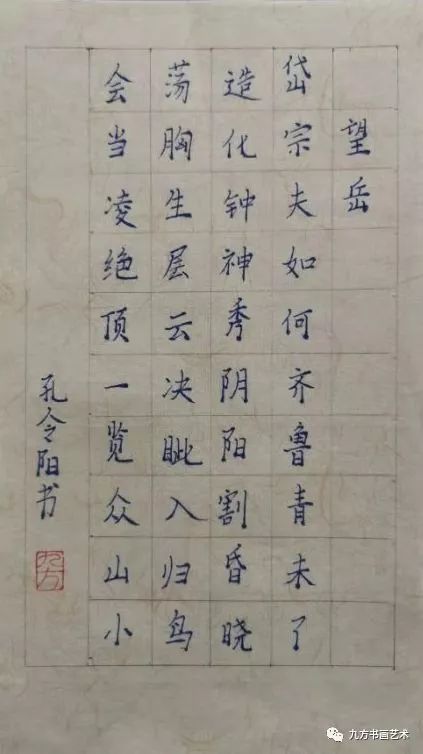 望岳
岱宗夫如何齐鲁青未了
造化钟神秀阴阳割昏晓
荡胸生层云决眦入归鸟
会当凌绝顶一览众山小
孔令阳书
九方
九方书画艺术